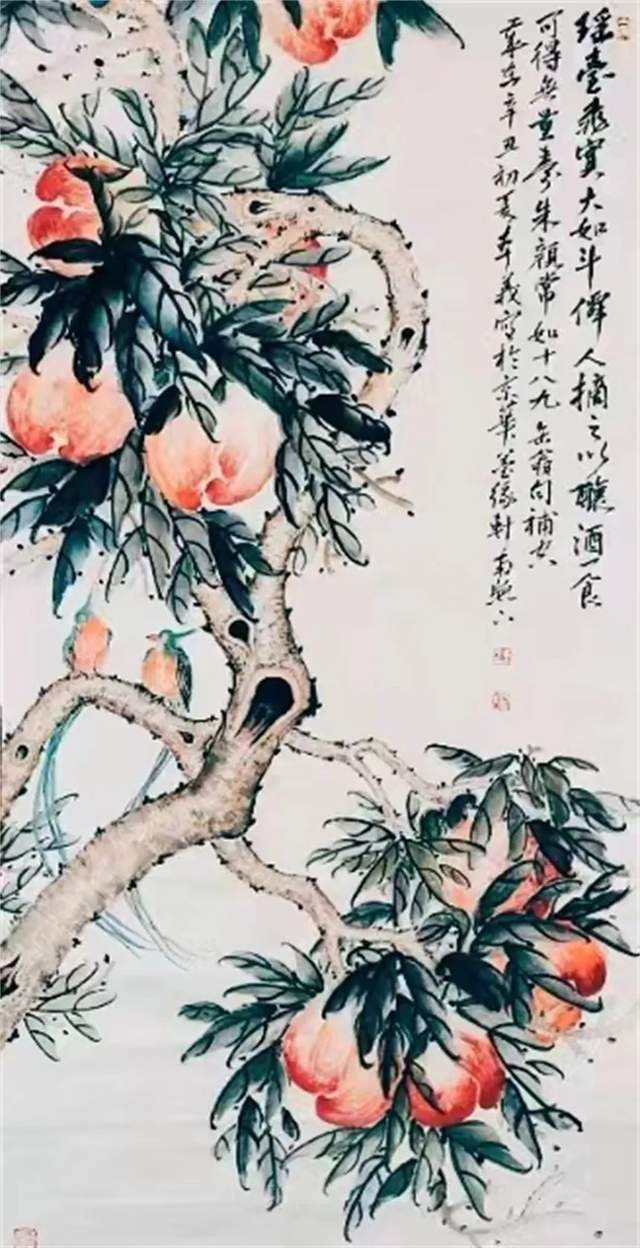 瑶臺飛實大如斗僊人摘之以釀酒一食
可得無量壽朱顏常如十八九缶翁句補空
歲在辛丑初夏本義寫於京華墨緣軒南窗下